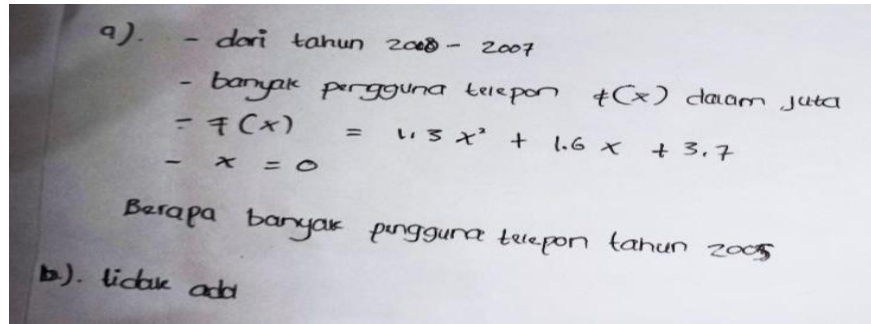 a). - dari tahun 2008 - 2007
- banyak pengguna telepon f(x) dalam juta
= f(x) = 1.3 x² + 1.6 x + 3.7
- x = 0
Berapa banyak pengguna telepon tahun 2005
b). tidak ada